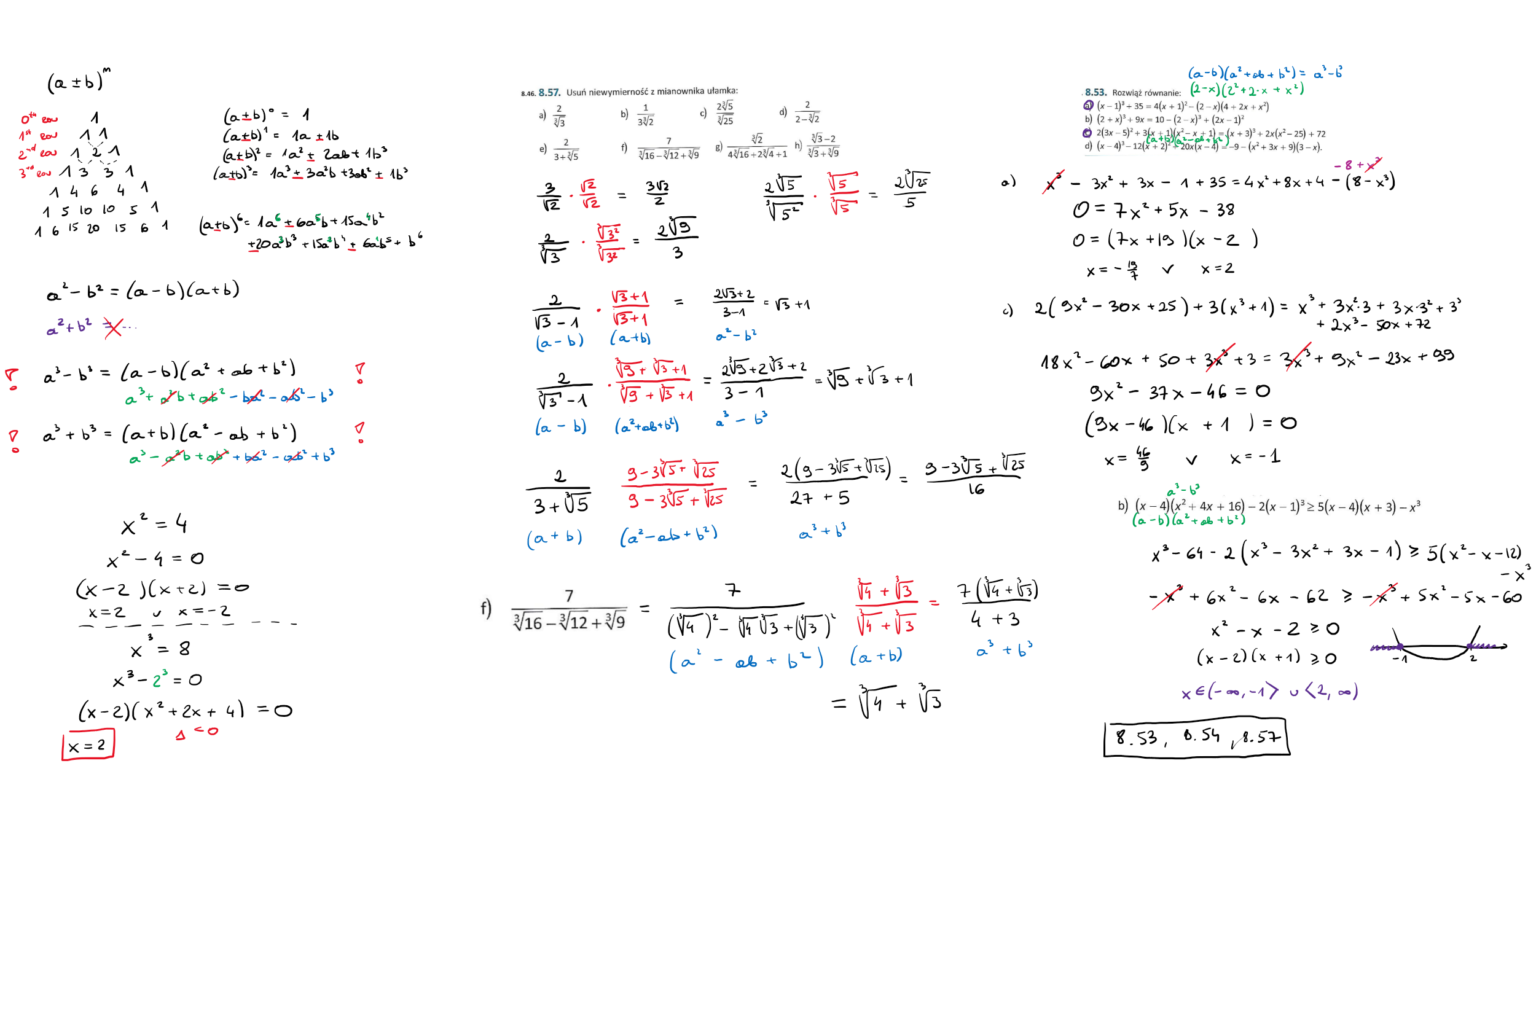 (a ± b)ᵐ
0ᵗʰ row 1
1ˢᵗ row 1 1
2ⁿᵈ row 1 2 1
3ʳᵈ row 1 3 3 1
1 4 6 4 1
1 5 10 10 5 1
1 6 15 20 15 6 1
(a±b)⁰ = 1
(a±b)¹ = 1a ± 1b
(a±b)² = 1a² ± 2ab + 1b³
(a±b)³ = 1a³ ± 3a²b + 3ab² ± 1b³
(a±b)⁶ = 1a⁶ ± 6a⁵b + 15a⁴b²
±20a³b³ + 15a²b⁴ ± 6a¹b⁵ + b⁶
a² - b² = (a - b)(a + b)
a² + b² = ...
! a³ - b³ = (a - b)(a² + ab + b²) !
a³ + a²b + ab² - ba² - ab² - b³
! a³ + b³ = (a + b)(a² - ab + b²) !
a³ - a²b + ab² + ba² - ab² + b³
x² = 4
x² - 4 = 0
(x - 2)(x + 2) = 0
x = 2 ∨ x = -2
x³ = 8
x³ - 2³ = 0
(x-2)(x² + 2x + 4) = 0
Δ < 0
x = 2
8.46. 8.57. Usuń niewymierność z mianownika ułamka:
a) 2/∛3 b) 1/3∛2 c) 2∛5/∛25 d) 2/2-∛2
e) 2/3+∛5 f) 7/∛16-∛12+∛9 g) ∛2/4∛16+2∛4+1 h) ∛3-2/∛3+∛9
3/√2 · √2/√2 = 3√2/2
2∛5/∛5² · ∛5/∛5 = 2∛25/5
2/∛3 · ∛3²/∛3² = 2∛9/3
2/√3 - 1 · √3+1/√3+1 = 2√3+2/3-1 = √3 + 1
(a - b) (a+b) a² - b²
2/∛3 - 1 · ∛9 + ∛3 + 1/∛9 + ∛3 + 1 = 2∛9 + 2∛3 + 2/3 - 1 = ∛9 + ∛3 + 1
(a - b) (a²+ab+b²) a³ - b³
2/3 + ∛5 9 - 3∛5 + ∛25/9 - 3∛5 + ∛25 = 2(9 - 3∛5 + ∛25)/27 + 5 = 9 - 3∛5 + ∛25/16
(a + b) (a² - ab + b²) a³ + b³
f) 7/∛16-∛12+∛9 = 7/(∛4)² - ∛4∛3 + (∛3)² ∛4 + ∛3/∛4 + ∛3 = 7(∛4 + ∛3)/4 + 3
(a² - ab + b²) (a + b) a³ + b³
= ∛4 + ∛3
(a-b)(a² + ab + b²) = a³ - b³
8.53. Rozwiąż równanie: (2-x)(2² + 2·x + x²)
a) (x - 1)³ + 35 = 4(x + 1)² - (2 - x)(4 + 2x + x²)
b) (2 + x)³ + 9x = 10 - (2 - x)³ + (2x - 1)²
c) 2(3x - 5)² + 3(x + 1)(x² - x + 1) = (x + 3)³ + 2x(x² - 25) + 72
(a+b)(a² - ab + b²)
d) (x - 4)³ - 12(x + 2)² + 20x(x - 4) = -9 - (x² + 3x + 9)(3 - x).
- 8 + x³
a) x³ - 3x² + 3x - 1 + 35 = 4x² + 8x + 4 - (8 - x³)
0 = 7x² + 5x - 38
0 = (7x + 19)(x - 2)
x = - 19/7 ∨ x = 2
c) 2(9x² - 30x + 25) + 3(x³ + 1) = x³ + 3x²·3 + 3x·3² + 3³
+ 2x³ - 50x + 72
18x² - 60x + 50 + 3x³ + 3 = 3x³ + 9x² - 23x + 99
9x² - 37x - 46 = 0
(9x - 46)(x + 1) = 0
x = 46/9 ∨ x = -1
a³ - b³
b) (x - 4)(x² + 4x + 16) - 2(x - 1)³ ≥ 5(x - 4)(x + 3) - x³
(a - b)(a² + ab + b²)
x³ - 64 - 2(x³ - 3x² + 3x - 1) ≥ 5(x² - x - 12)
- x³
- x³ + 6x² - 6x - 62 ≥ - x³ + 5x² - 5x - 60
x² - x - 2 ≥ 0
(x - 2)(x + 1) ≥ 0
-1 2
x ∈ (-∞, -1> ∪ <2, ∞)
8.53, 8.54, 8.57